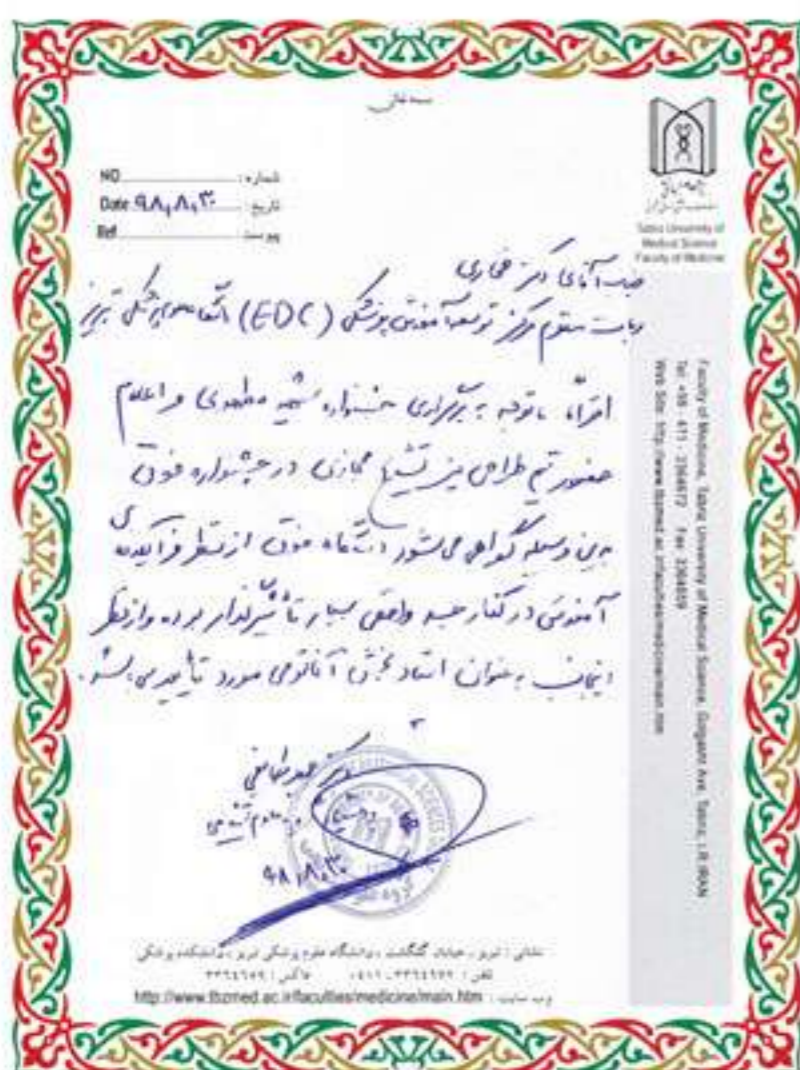 بسمه تعالی
NO شماره :
Date ۹۸,۸,۳۰ تاریخ :
Ref پیوست :
Tabriz University of
Medical Science
Faculty of Medicine
جناب آقای دکتر غفاری
ریاست محترم مرکز توسعه آموزش پزشکی (EDC) دانشگاه علوم پزشکی تبریز
احتراماً با توجه به برگزاری جشنواره شهید مطهری و اعلام
حضور تیم طراحی میز تشریح مجازی در جشنواره فوق
بدین وسیله گواهی می‌شود دستگاه فوق از نظر فرآیندهای
آموزشی در کنار جسد واقعی بسیار تأثیرگذار بوده و از نظر
اینجانب به عنوان استاد بخش آناتومی مورد تأیید می‌باشد.
دکتر
علوم تشریحی
۹۸,۸,۳۰
Faculty of Medicine, Tabriz University of Medical Science, Golgasht Ave, Tabriz, I.R.IRAN
Tel: +98 - 411 - 3364672 Fax: 3364659
Web Site: http://www.tbzmed.ac.ir/faculties/medicine/main.htm
نشانی : تبریز ، خیابان گلگشت ، دانشگاه علوم پزشکی تبریز ، دانشکده پزشکی
تلفن : فاکس : ۳۳۶۴۶۵۹
وب سایت : http://www.tbzmed.ac.ir/faculties/medicine/main.htm